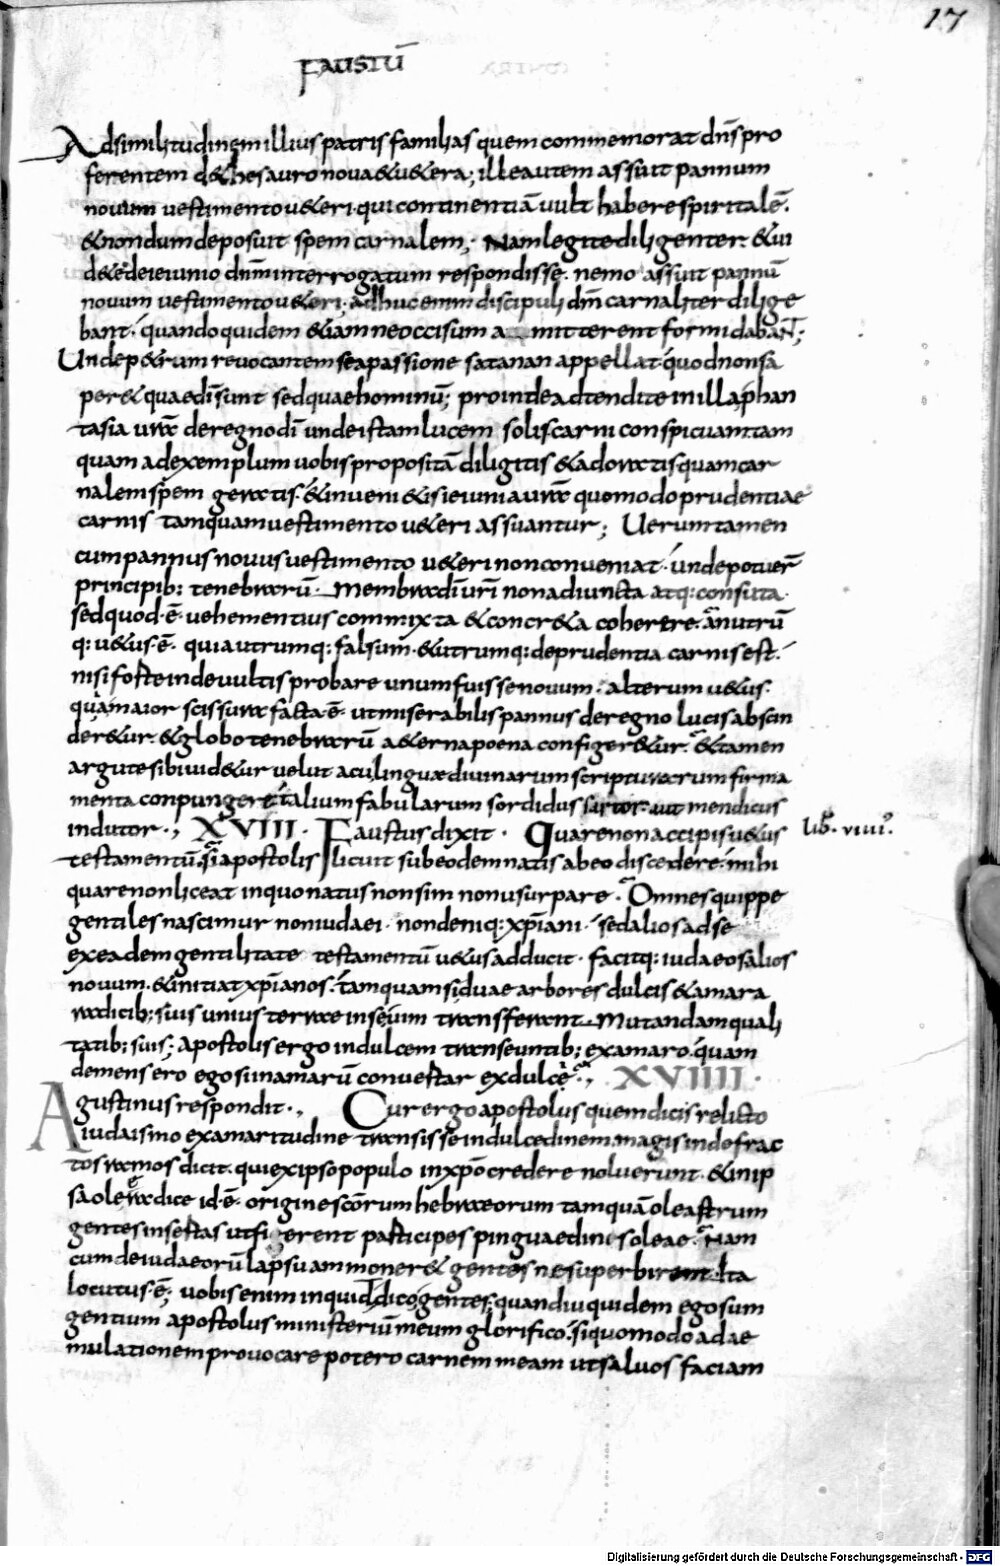 17
FAUSTŪ
Adsimilitudinem illius patris familias quem commemorat dn̄s pro
ferentem de thesauro nova & u&era; ille autem assuit pannum
novum vestimento u&eri. qui continentiā vult habere spiritalē.
& nondum deposuit spem carnalem; Nam legite diligenter. & ui
d&e de ieiunio dn̄m interrogatum respondisse. nemo assuit pannū
novum vestimento u&eri. adhuc enim discipuli dn̄i carnaliter dilige
bant. quandoquidem &iam ne occisum amitterent formidabant;
Unde p&rum revocantem se a passione satanan appellat. quod non sa
per& quae dī sunt sed quae hominū; proinde adtendite in illa phan
tasia vr̄a de regno dī. unde istam lucem solis carni conspicuam tam
quam ad exemplum vobis propositā diligitis & adoratis quam car
nalem spem geratis. & inveni&is ieiunia vr̄a quomodo prudentiae
carnis tamquam vestimento u&eri assuantur; Uerumtamen
cum pannus novus vestimento u&eri non conveniat. unde potuer̄
principib: tenebrarū. membra dī vr̄i non adiuncta atq: consuta.
sed quod. ē. vehementius commixta & concr&a coherere. an utrū
q: u&us. ē. quia utrumq: falsum. & utrumq: de prudentia carnis est.
nisi forte inde vultis probare unum fuisse novum. alterum u&us.
quā maior scissura facta. ē. ut miserabilis pannus de regno lucis abscin
der&ur. & globo tenebrarū a&erna poena configer&ur. & tamen
argute sibi uid&ur velut acu linguae divinarum scripturarum firma
menta conpungere talium fabularum sordidus sartor. aut mendicus
indutor., XVIII. Faustus dixit. Quare non accipis u&us
lib̄. viiii.
testamentū. si apostolis licuit sub eodem natis ab eo discedere. mihi
quare non liceat in quo natus non sim non usurpare. Omnes quippe
gentiles nascimur non iudaei. non deniq: xp̄iani. sed alios ad se
ex eadem gentilitate testamentū u&us adducit. facitq: iudaeos alios
novum. & initiat xp̄ianos. tamquam si duae arbores dulcis & amara
radicib: suis unius terrae in se vim transferant. Mutandam quali
tatib: suis; Apostolis ergo in dulcem transeuntib: ex amaro. quam
demens ero ego si in amarū convertar ex dulce., XVIIII.
Agustinus respondit., Cur ergo apostolus quem dicis relicto
iudaismo ex amaritudine transisse in dulcedinem. magis inde frac
tos ramos dicit. qui ex ipso populo in xp̄o credere noluerunt. & in ip
sa oleae radice id. ē. origine scōrum hebraeorum tamquā oleastrum
gentes insertas ut fierent participes pinguaedinis oleae. Nam
cum de iudaeorū lapsu ammoner& gentes ne superbirent. Ita
locutus. ē; vobis enim inquid dico gentes. quandiu quidem ego sum
gentium apostolus ministeriū meum glorifico. si quomodo ad ae
mulationem provocare potero carnem meam ut salvos faciam
Digitalisierung gefördert durch die Deutsche Forschungsgemeinschaft - DFG